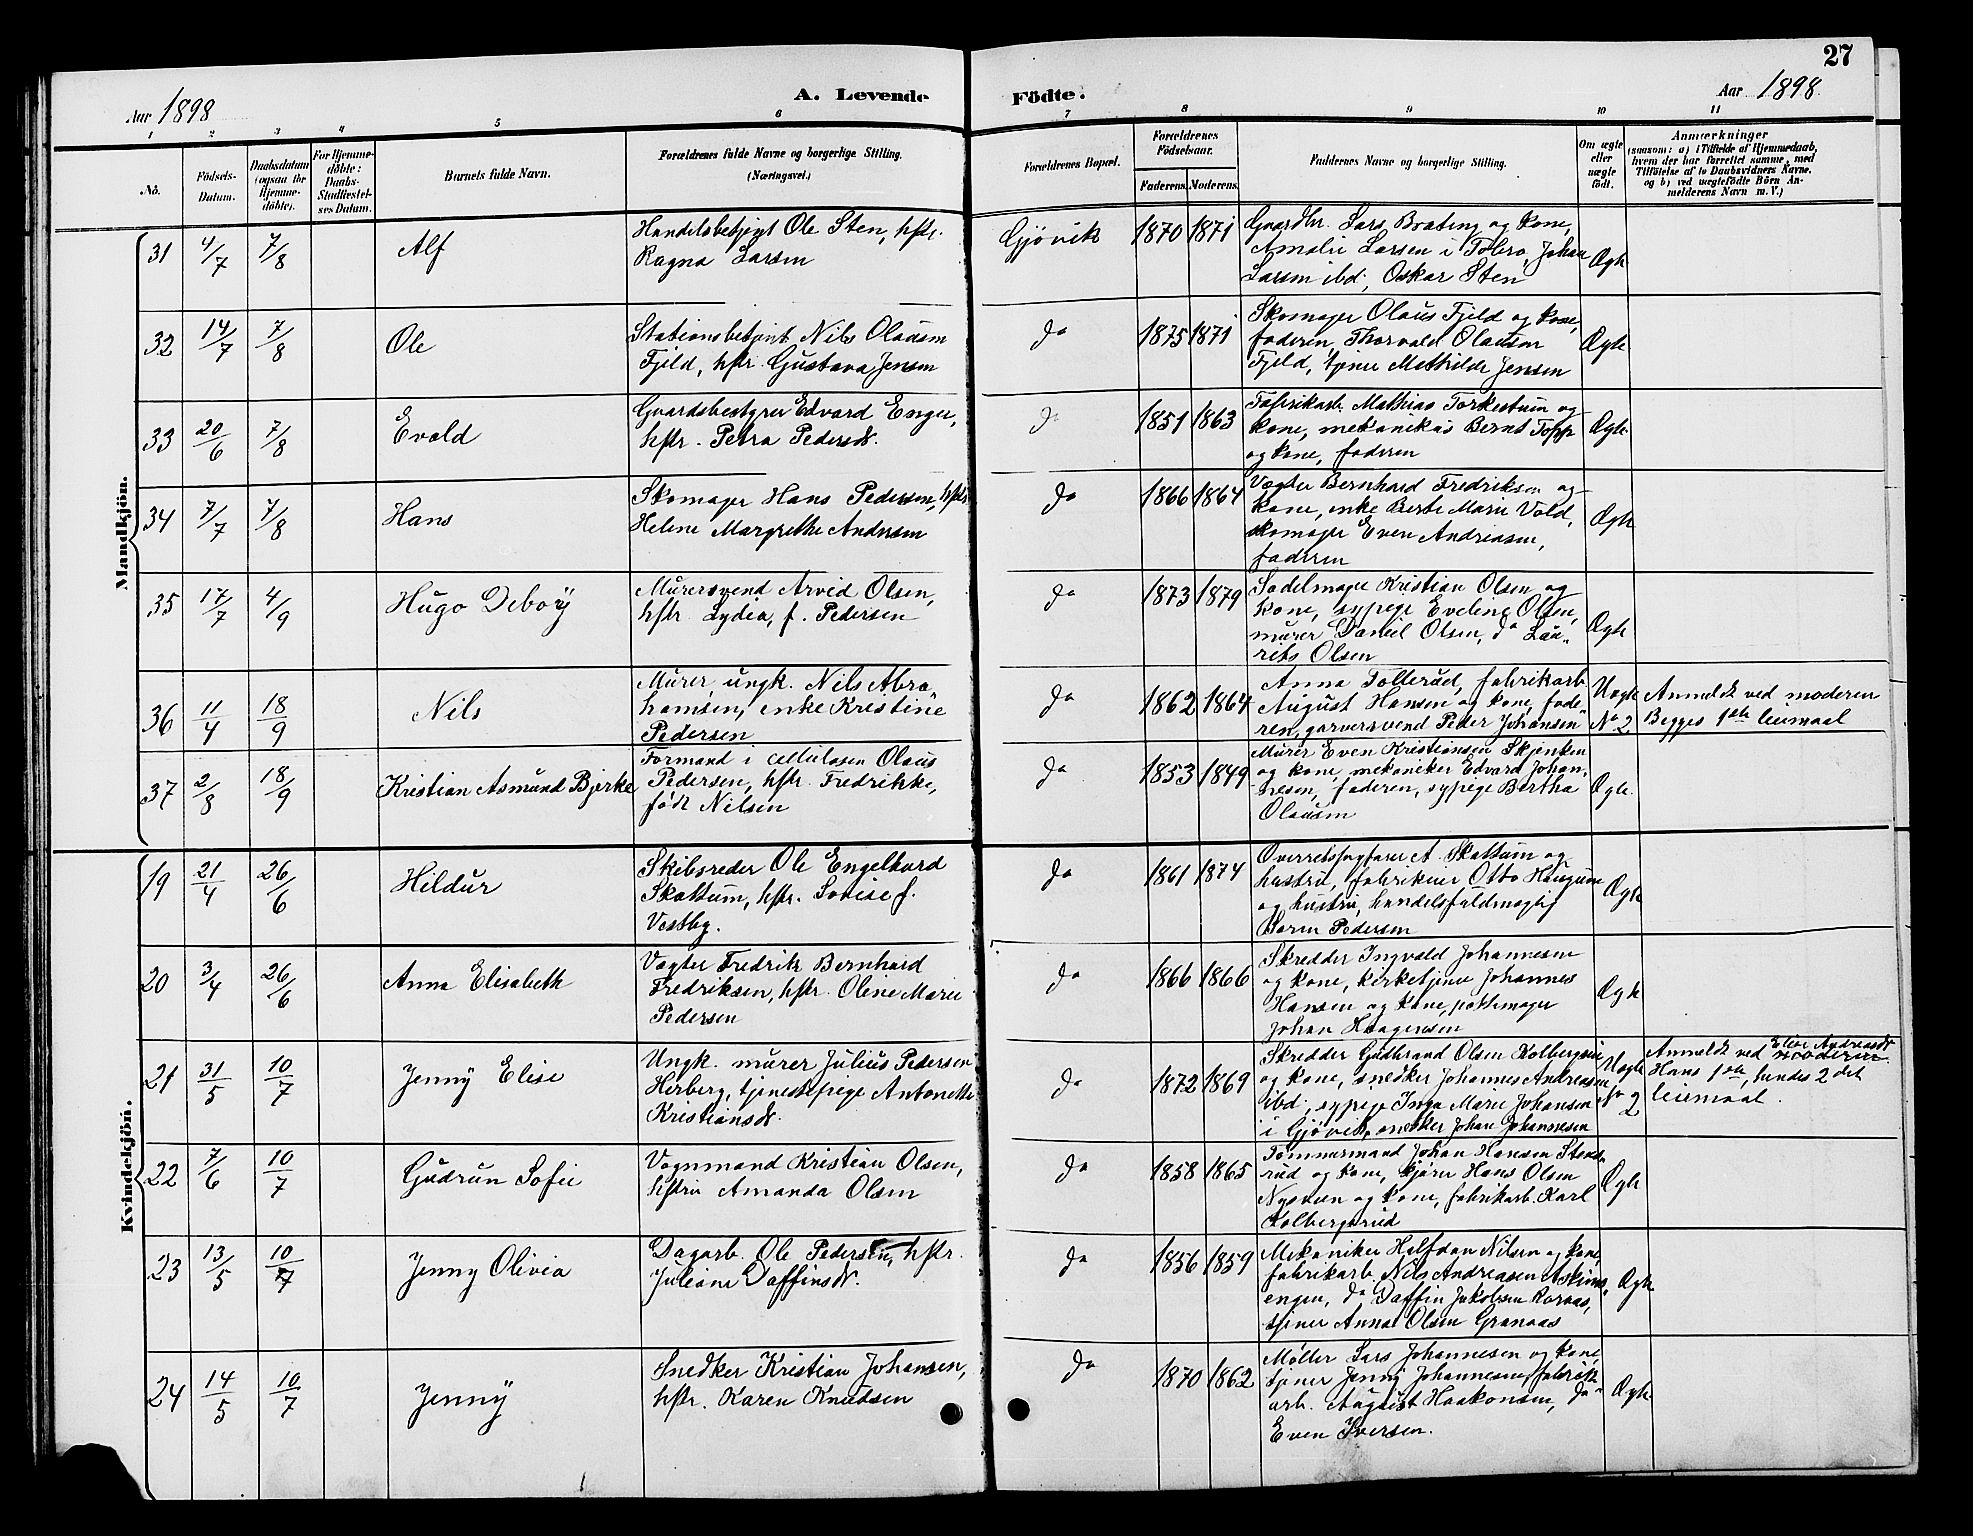 27
Aar 1898
A. Levende
Födte.
Aar 1898
1 2 3 4 5 6 7 8 9 10 11
No.
Födsels-
Datum.
Daabsdatum
(ogsaa for
Hjemme-
döbte).
For Hjemme-
döbte:
Daabs-
Stadfæstel-
ses Datum.
Barnets fulde Navn.
Forældrenes fulde Navne og borgerlige Stilling.
(Næringsvei.)
Forældrenes Bopæl.
Forældrenes
Födselsaar.
Faderens. Moderens.
Faddernes Navne og borgerlige Stilling.
Om ægte
eller
uægte
födt.
Anmærkninger
(saasom: a) i Tilfælde af Hjemmedaab,
hvem der har forrettet samme, med
Tilföielse af to Daabsvidners Navne,
og b) ved uægtefödte Börn An-
melderens Navn m. V.)
Mandkjön.
31 4/7 7/8 Alf
Handelsbetjent Ole Sten, hstr.
Ragna Larsen
Gjövik 1870 1871
Gaardbr. Lars Braaten og kone,
Amalie Larsen i Tobro, Johan
Larsen ibd, Oskar Sten
Ægte
32 14/7 7/8 Ole
Stationsbetjent Nils Olausen
Fjeld, hstr. Gustava Jensen
do 1875 1871
Skomager Olaus Fjeld og kone,
faderen, Thorvald Olausen
Fjeld, tjener Mathilde Jensen
Ægte
33 20/6 7/8 Evald
Gaardsbestyrer Edvard Enger,
hstr. Petra Pedersdr.
do 1851 1863
Fabrikarb. Mathias Torkestuen og
kone, mekanikus Bernt Topp
og kone, faderen
Ægte
34 7/7 7/8 Hans
Skomager Hans Pedersen, hstr.
Helene Margrethe Andersen
do 1866 1864
Vægter Bernhard Fredriksen og
kone, enke Berte Marie Vold,
skomager Even Andreasen,
faderen
Ægte
35 17/7 4/9 Hugo Deboy
Murersvend Arvid Olsen,
hstr. Lydia, f. Pedersen
do 1873 1879
Sadelmager Kristian Olsen og
kone, sypige Eveline Olsen,
murer Daniel Olsen, do Lau-
rits Olsen
Ægte
36 11/4 18/9 Nils
Murer, ungk. Nils Abra-
hamsen, enke Kristine
Pedersen
do 1862 1864
Anna Tollerud, fabrikarb.
August Hansen og kone, fade-
ren, garversvend Peder Johansen
Uægte
No 2
Anmeldt ved moderen
Begges 1ste leiemaal
37 2/8 18/9 Kristian Asmund Bjerke
Formand i cellulosen Olaus
Pedersen, hstr. Fredrikke,
født Nilsen
do 1853 1849
Murer Even Kristiansen Skjenken
og kone, mekaniker Edvard Johan-
nesen, faderen, sypige Bertha
Olausen
Ægte.
Kvindekjön.
19 21/4 26/6 Hildur
Skibsreder Ole Engelhard
Skattum, hstr. Lovise f.
Vestby.
do 1861 1874
Overretssagfører A. Skattum og
hustru, fabrikeier Otto Haugum
og hustru, handelsfuldmægtig
Søren Pedersen
Ægte
20 3/4 26/6 Anna Elisabeth
Vægter Fredrik Bernhard
Fredriksen, hstr. Oline Marie
Pedersen
do 1866 1866
Skredder Ingvald Johannesen
og kone, kirketjener Johannes
Hansen og kone, pottemager
Johan Haagensen
Ægte
21 31/5 10/7 Jenny Elise
Ungk. murer Julius Pedersen
Herberg, tjenestepige Antonette
Kristiansdr.
do 1872 1869
Skredder Gudbrand Olsen Kolbergsrud
og kone, snedker Johannes Andreasen
ibd, sypige Inga Marie Johansen
i Gjövik, snedker Johan Johannesen
Uægte
No 2
Elise Andreasdr.
Anmeldt ved moderen
Hans 1ste, hendes 2det
leiemaal.
22 7/6 10/7 Gudrun Sofie
Vognmand Kristian Olsen,
hstru Amanda Olsen
do 1858 1865
Tømmermand Johan Hansen Stens-
rud og kone, kjører Hans Olsen
Nystuen og kone, fabrikarb. Karl
Kolbergsrud
Ægte
23 13/5 10/7 Jenny Olivia
Dagarb. Ole Pedersen, hstr.
Juliane Daffinsdr.
do 1856 1859
Mekaniker Halfdan Nilsen og kone,
fabrikarb. Nils Andreasen Askims-
engen, do Daffin Jakobsen
tjener Anna Olsen Granaas
Ægte
24 14/5 10/7 Jenny
Snedker Kristian Johansen,
hstr. Karen Knudsen
do 1870 1862
Møller Lars Johannesen og kone,
tjener Jenny Johannesen, fabrik-
arb. August Haakonsen, do
Even Iversen.
Ægte